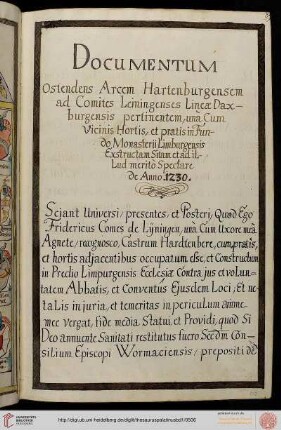 DOCUMENTUM
Ostendens Arcem Hartenburgensem
ad Comites Leiningenses Lineæ Dax-
burgensis pertinentem, unà Cum
Vicinis Hortis, et pratis in Fun-
do Monasterii Limburgensis
Exstructam Sitam et ad il-
Lud meritò Spectare
de Anno 1230.
Sejant Universi, presentes, et Posteri, Quod Ego
Fridericus Comes de Lijningen, unà Cum Uxore meâ
Agnete, recognosco, Castrum Hardtenberc, cum pratis,
et hortis adjacentibus occupatum esse, et Constructum
in Predio Limpurgensis Ecclesiæ Contra jus et volun-
tatem Abbatis, et Conventus Ejusdem Loci, Et ne
talis in juria, et temeritas in periculum animæ
meæ vergat, fide media. Statui, et Providi, quod Si
Deo annuente Sanitati restitutus fuero Secundum Con-
silium Episcopi Wormaciensis, prepositi de
http://digi.ub.uni-heidelberg.de/diglit/thesauruspalatinusbd1/0500